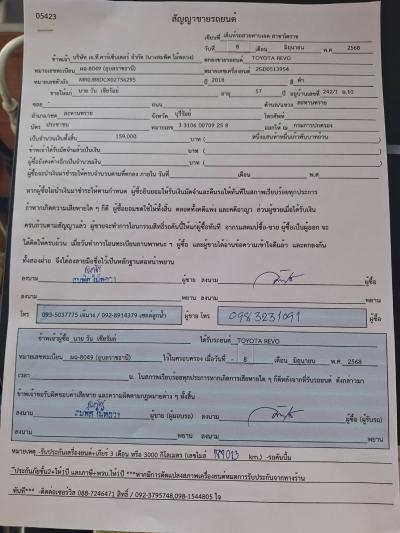 05423
สัญญาขายรถยนต์
เขียนที่ เต็นท์รถสวยตามบอด สาขาโคราช
วันที่ 8 เดือน มิถุนายน พ.ศ 2568
ข้าพเจ้า ตกลงขายรถยนต์ TOYOTA REVO
หมายเลขทะเบียน ผอ-8049 (อุบลราชธานี) หมายเลขเครื่องยนต์ 2GD0513954
หมายเลขตัวถัง MR0JB8DCX02756295 ปี 2018 สี ดำ
ขายให้แก่ นาย วัน เชียรัมย์ อายุ 57 ปี อยู่บ้านเลขที่ 242/1 ม.10
ซอย ถนน ตำบล/แขวง สะพานทราย
อำเภอ/เขต จังหวัด บุรีรัมย์ โทรศัพท์
บัตร ประชาชน หมายเลข 3 3106 00709 25 8 ออกให้ ณ กรมการปกครอง
เป็นจำนวนเงินทั้งสิ้น 159,000 บาท ( หนึ่งแสนห้าหมื่นเก้าพันบาทถ้วน )
ข้าพเจ้าได้รับมัดจำแล้วเป็นเงิน บาท ( )
ผู้ซื้อยังคงค้างอีกเป็นจำนวนเงิน บาท ( )
ผู้ซื้อจะนำเงินมาชำระให้ครบจำนวนตามที่ตกลง ภายใน วันที่ เดือน พ.ศ
หากผู้ซื้อไม่นำเงินมาชำระให้ตามกำหนด ผู้ซื้อยินยอมให้ริบเงินมัดจำและคืนรถให้ทันทีในสภาพเรียบร้อยทุกประการ
ถ้าหากเกิดความเสียหายใด ๆ ก็ดี ผู้ซื้อยอมชดใช้ให้ทั้งสิ้น ตลอดทั้งคดีแพ่ง และคดีอาญา ส่วนผู้ขายเมื่อได้รับเงิน
ครบถ้วนตามสัญญาแล้ว ผู้ขายจะทำการโอนกรรมสิทธิ์รถคันนี้ให้แก่ผู้ซื้อทันที จากกรมสดเปบี้ย-ขาย ผู้ซื้อเป็นผู้ออก จะ
ได้ติดให้ครบถ้วน เมื่อวันทำการโอนทะเบียนยานพาหนะ ฯ ผู้ซื้อ และผู้ขายได้อ่านข้อความเข้าใจดีแล้ว และตกลงกัน
ทั้งสองฝ่าย จึงได้ลงลายมือชื่อไว้เป็นหลักฐานต่อหน้าพยาน
ลงนาม ผู้ขาย ลงนาม ผู้ซื้อ
ลงนาม พยาน ลงนาม พยาน
โทร 093-5037775 ผู้ขาย โทร 0983231091 ผู้ซื้อ
ข้าพเจ้าผู้ซื้อ นาย วัน เชียรัมย์ ได้รับรถยนต์ TOYOTA REVO
หมายเลขทะเบียน ผอ-8049 (อุบลราชธานี) ไว้ในครอบครอง เมื่อวันที่ - 8 เดือน มิถุนายน พ.ศ 2568
เวลา น. ในสภาพเรียบร้อยทุกประการหากเกิดการเสียหายใด ๆ ก็ดีหลังจากที่รับรถยนต์ ดังกล่าวมา
ข้าพเจ้าขอรับผิดชอบค่าเสียหาย และความผิดตามกฎหมายต่าง ๆ ทั้งสิ้น
ลงนาม ผู้ขาย (ผู้มอบรถ) ลงนาม ผู้ซื้อ (ผู้รับรถ)
ลงนาม พยาน ลงนาม พยาน
หมายเหตุ -รับประกันเครื่องยนต์+เกียร์ 3 เดือน หรือ 3000 กิโลเมตร (เลขไมล์ 189013 km.) -รถคันนี้
*ประกันภัยชั้น2+ให้1ปี และภาษี+พรบ.ให้1ปี ***หากมีการดัดแปลงสภาพเครื่องยนต์หมดการรับประกันจากทางร้าน
ทันที*** -ติดต่อเซอร์วิส 088-7246471 สิทธิ์ / 092-3795748,098-1544805 ใจ